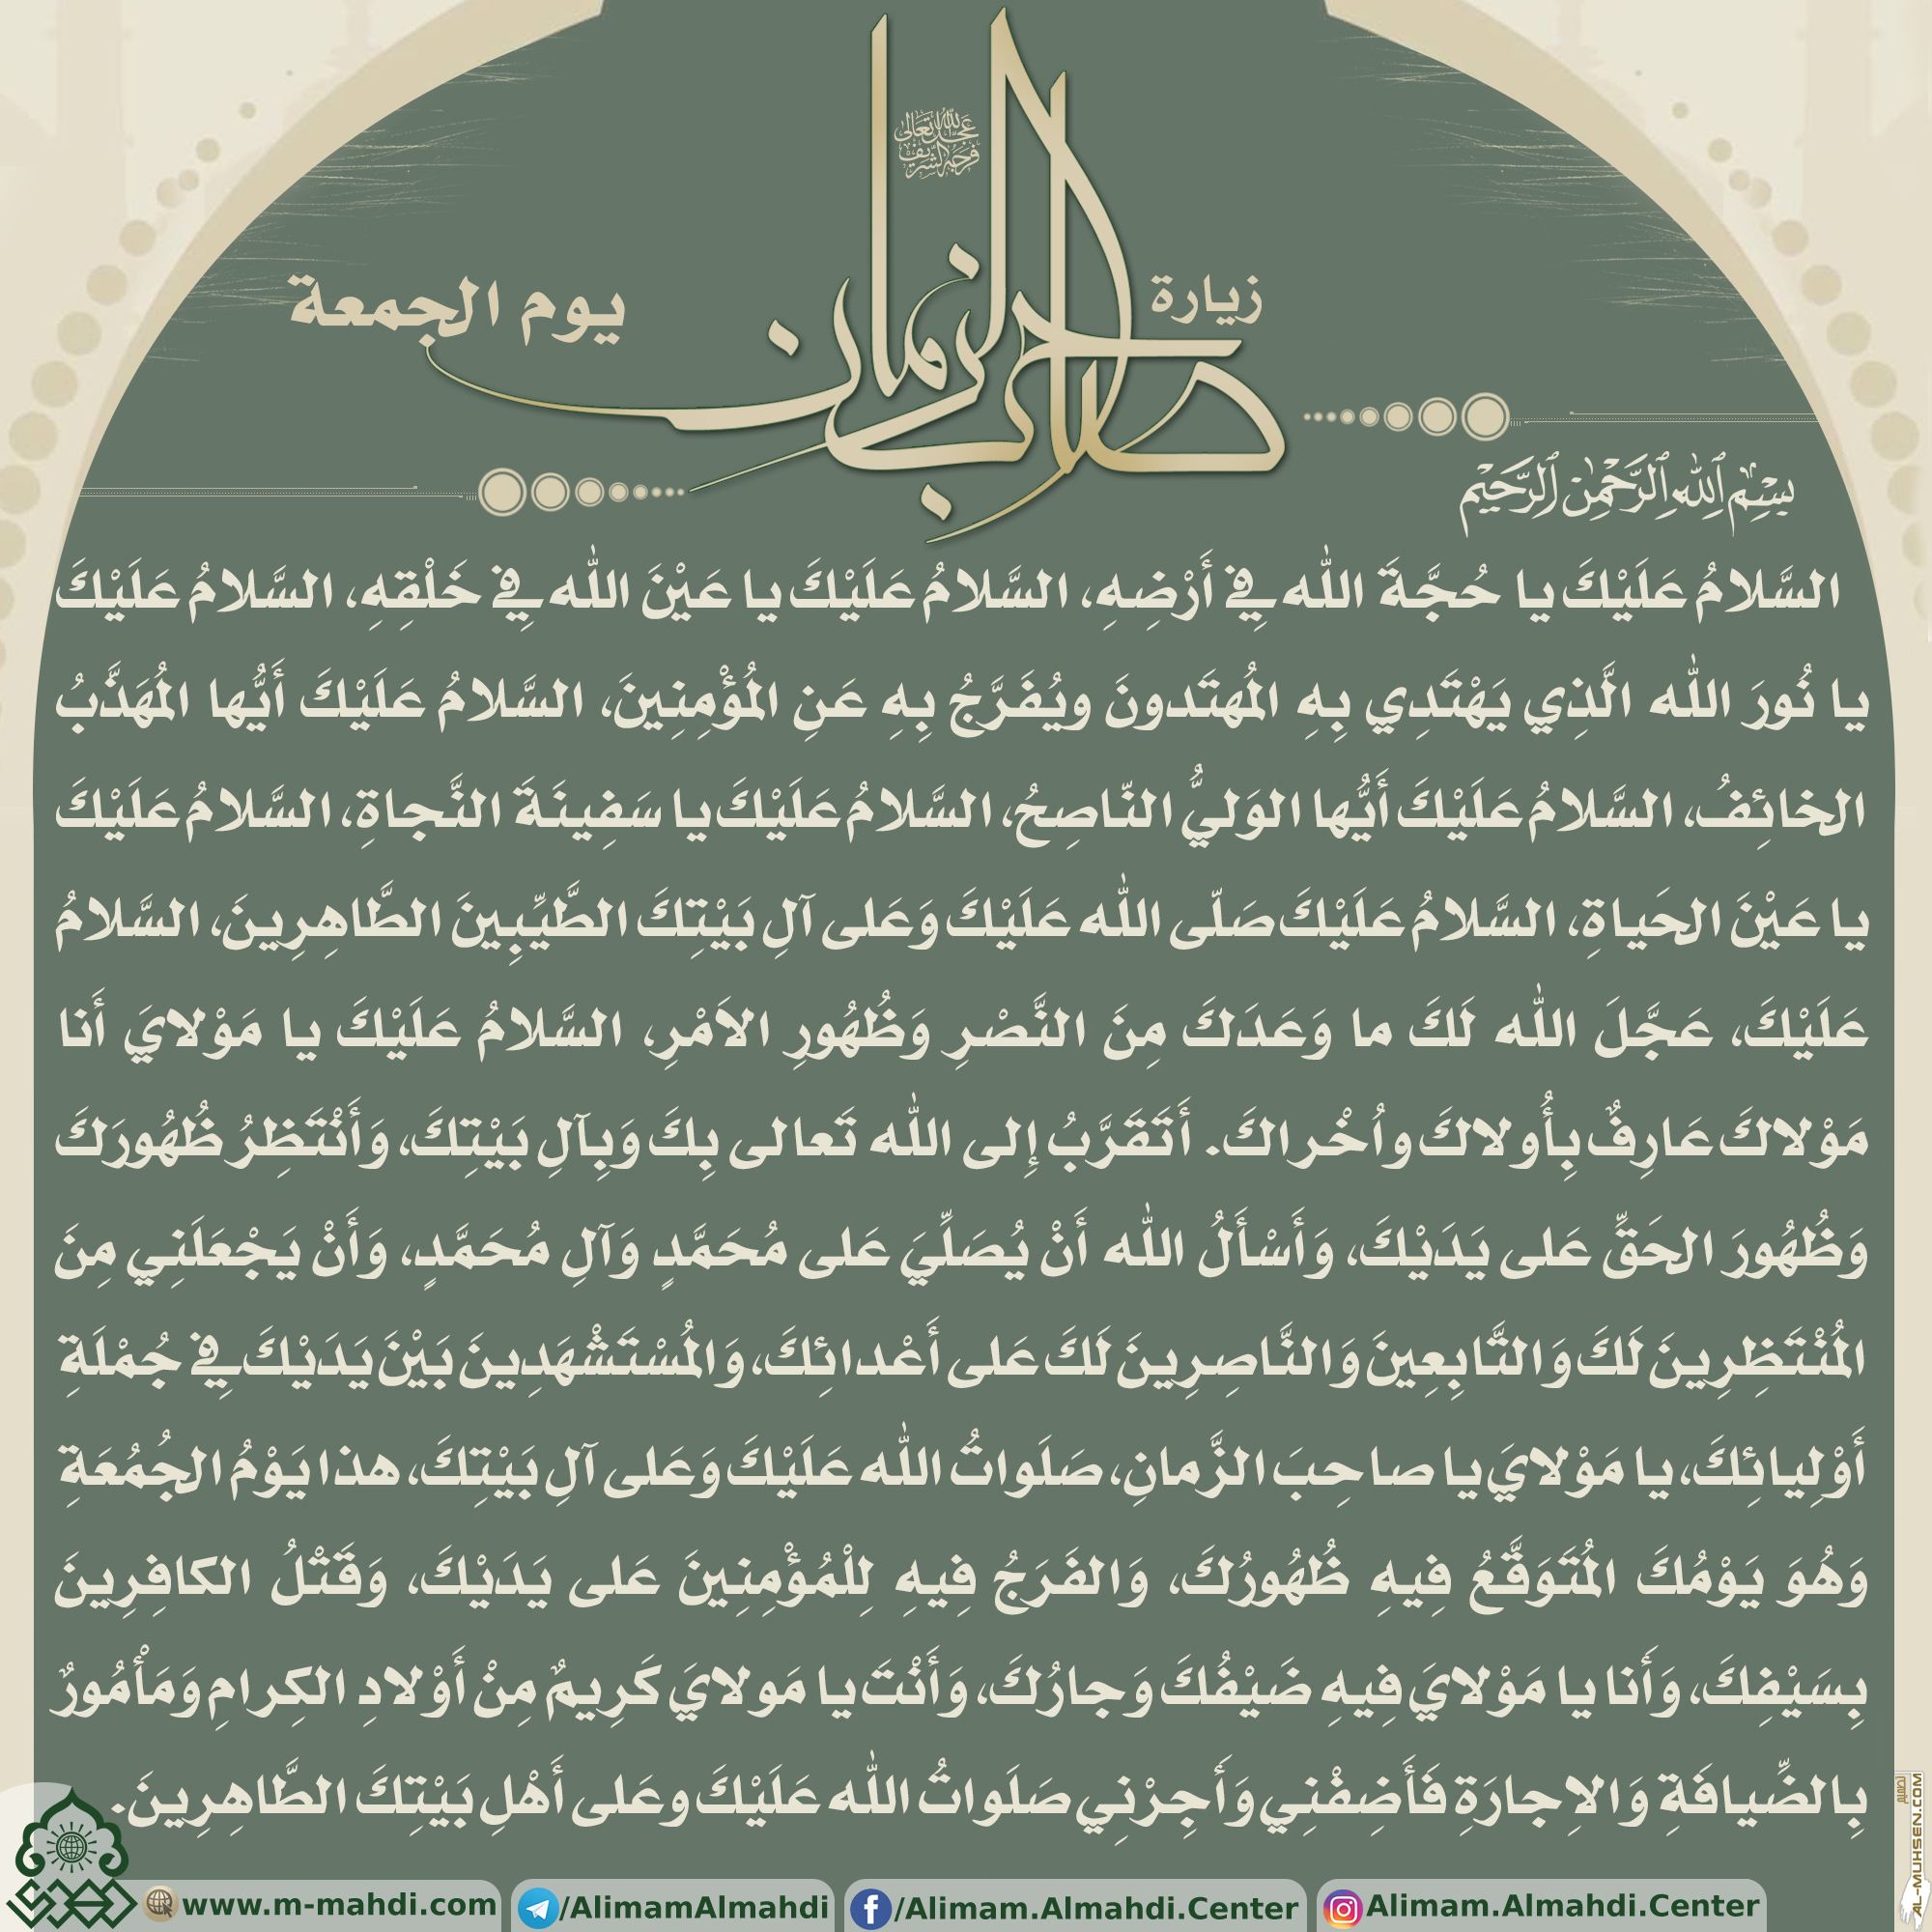 عجل الله تعالى
فرجه الشريف
زيارة
صاحب الزمان
يوم الجمعة
بِسْمِ ٱللهِ ٱلرَّحْمٰنِ ٱلرَّحِيمِ
السَّلامُ عَلَيْكَ يا حُجَّةَ الله فِي أَرْضِهِ، السَّلامُ عَلَيْكَ يا عَيْنَ الله فِي خَلْقِهِ، السَّلامُ عَلَيْكَ
يا نُورَ الله الَّذِي يَهْتَدِي بِهِ المُهتَدونَ ويُفَرَّجُ بِهِ عَنِ المُؤْمِنِينَ، السَّلامُ عَلَيْكَ أَيُّها المُهَذَّبُ
الخائِفُ، السَّلامُ عَلَيْكَ أَيُّها الوَليُّ النّاصِحُ، السَّلامُ عَلَيْكَ يا سَفِينَةَ النَّجاةِ، السَّلامُ عَلَيْكَ
يا عَيْنَ الحَياةِ، السَّلامُ عَلَيْكَ صَلّى الله عَلَيْكَ وَعَلى آلِ بَيْتِكَ الطَّيِّبِينَ الطَّاهِرِينَ، السَّلامُ
عَلَيْكَ، عَجَّلَ الله لَكَ ما وَعَدَكَ مِنَ النَّصْرِ وَظُهُورِ الاَمْرِ، السَّلامُ عَلَيْكَ يا مَوْلايَ أَنا
مَوْلاكَ عَارِفٌ بِأُولاكَ واُخْراكَ. أَتَقَرَّبُ إِلى الله تَعالى بِكَ وَبِآلِ بَيْتِكَ، وَأَنْتَظِرُ ظُهُورَكَ
وَظُهُورَ الحَقِّ عَلى يَدَيْكَ، وَأَسْأَلُ الله أَنْ يُصَلِّيَ عَلى مُحَمَّدٍ وَآلِ مُحَمَّدٍ، وَأَنْ يَجْعَلَنِي مِنَ
المُنْتَظِرِينَ لَكَ وَالتَّابِعِينَ وَالنَّاصِرِينَ لَكَ عَلى أَعْدائِكَ، وَالمُسْتَشْهَدِينَ بَيْنَ يَدَيْكَ فِي جُمْلَةِ
أَوْلِيائِكَ، يا مَوْلايَ يا صاحِبَ الزَّمانِ، صَلَواتُ الله عَلَيْكَ وَعَلى آلِ بَيْتِكَ، هذا يَوْمُ الجُمُعَةِ
وَهُوَ يَوْمُكَ المُتَوَقَّعُ فِيهِ ظُهُورُكَ، وَالفَرَجُ فِيهِ لِلْمُؤْمِنِينَ عَلى يَدَيْكَ، وَقَتْلُ الكافِرِينَ
بِسَيْفِكَ، وَأَنا يا مَوْلايَ فِيهِ ضَيْفُكَ وَجارُكَ، وَأَنْتَ يا مَولايَ كَرِيمٌ مِنْ أَوْلادِ الكِرامِ وَمَأْمُورٌ
بِالضِّيافَةِ وَالاِجارَةِ فَأَضِفْنِي وَأَجِرْنِي صَلَواتُ الله عَلَيْكَ وعَلى أَهْلِ بَيْتِكَ الطَّاهِرِينَ.
www.m-mahdi.com /AlimamAlmahdi /Alimam.Almahdi.Center Alimam.Almahdi.Center
تصميم
AL-MUHSEN.COM